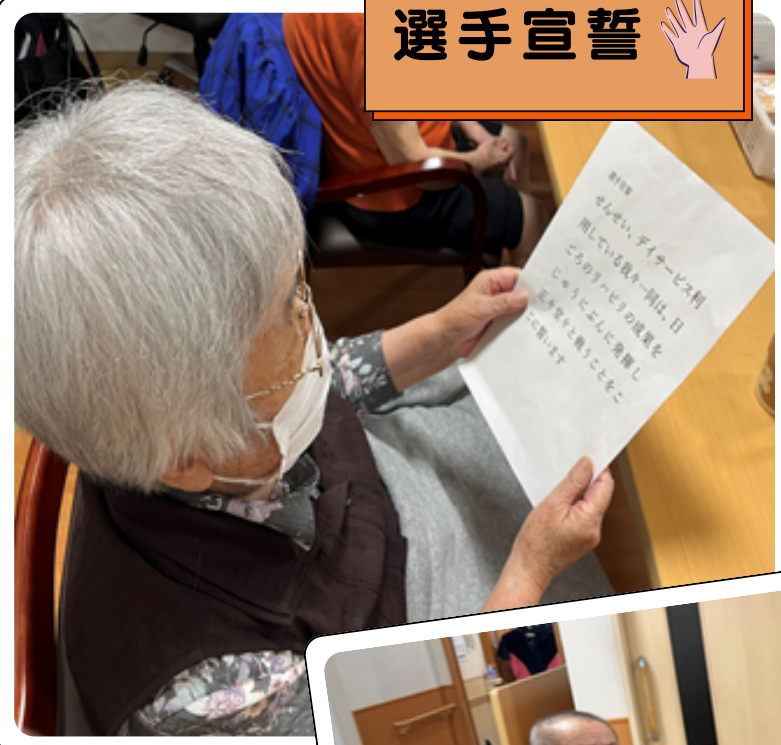 選手宣誓
選手宣誓
せんせい、デイサービス利
用している我々一同は、日
ごろのリハビリの成果を
じゅうにぶんに発揮し
正々堂々と戦うことをこ
こに誓います